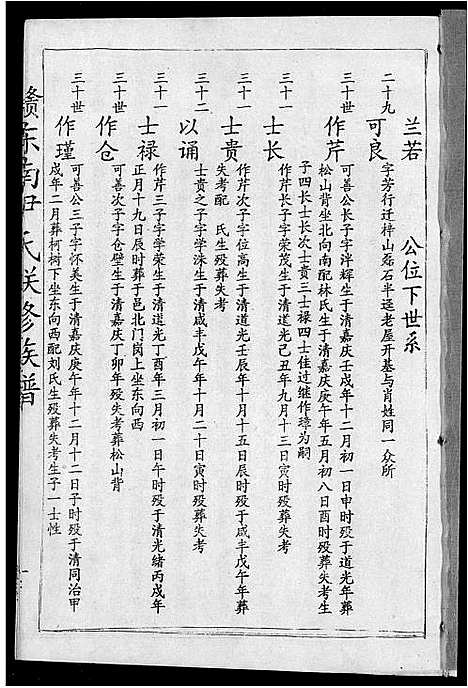 兰若
公位下世系
二十九
可良
字芳行迁梓山磊石半迳老屋开基与肖姓同一众所
三十世
作芹
可善公长子字泮辉生于清嘉庆壬戌年十二月初一日申时殁于道光年葬
松山背坐北向南配林氏生于清嘉庆庚午年五月初八日酉时殁葬失考生
子四长士长次士贵三士禄四士佳过继作璋为嗣
三十一
士长
作芹长子字荣茂生于清道光己丑年九月十三日寅时殁葬失考
三十一
士贵
作芹次子字位高生于清道光壬辰年十月十五日辰时殁于咸丰戊午年葬
失考配 氏生殁葬失考
三十二
以诵
士贵之子字学洙生于清咸丰戊午年十月二十日寅时殁葬失考
三十一
士禄
作芹三子字学荣生于清道光丁酉年三月初一日午时殁于清光绪丙戌年
正月十九日辰时葬于邑北门岗上坐东向西
三十世
作仓
可善次子字仓壁生于清嘉庆丁卯年殁失考葬松山背
三十世
作瑾
可善公三子字怀美生于清嘉庆庚午年十二月十二日子时殁于清同治甲
戌年二月葬柯树下坐东向西配刘氏生殁葬失考生子一士性
赣东南尹氏联修族谱